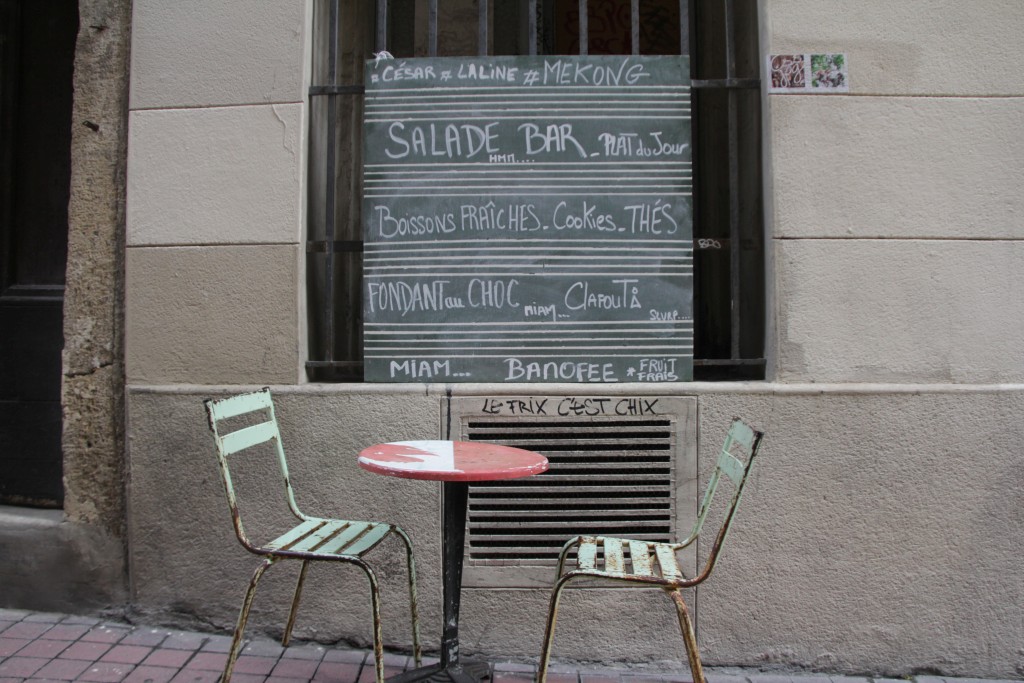 #CÉSAR # LALINE #MEKONG
SALADE BAR_PLAT du JOUR
HMM....
BOISSONS FRAÎCHES_COOKIES_THÉS
FONDANT au CHOC MIAM... CLAFOUTi
SLURP....
MIAM... BANOFEE * FRUIT FRAIS
LE FRIX C'EST CHIX